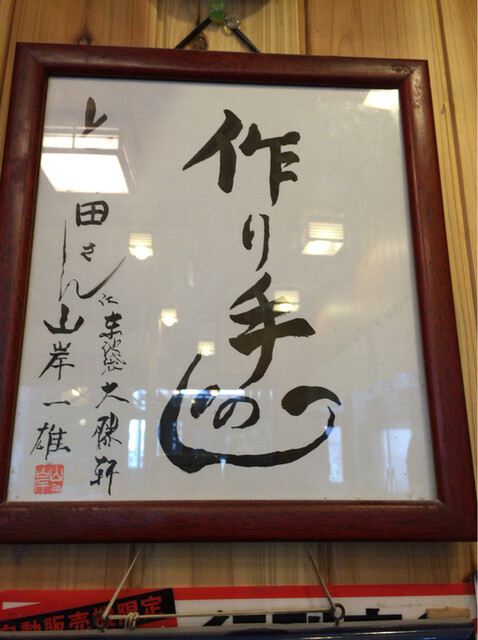 作り手の心
田さん江
東池袋大勝軒
山岸一雄
自動販売機限定